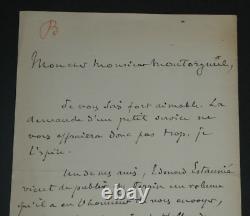 B
Mon cher Monsieur Montorgueil,
Je vous sais fort aimable. La
demande d'un petit service ne
vous effraiera donc pas trop, je
l'espère.
Un de mes amis, Edouard Estaunié
vient de publier un volume
qu'il a eu l'honneur de vous envoyer,